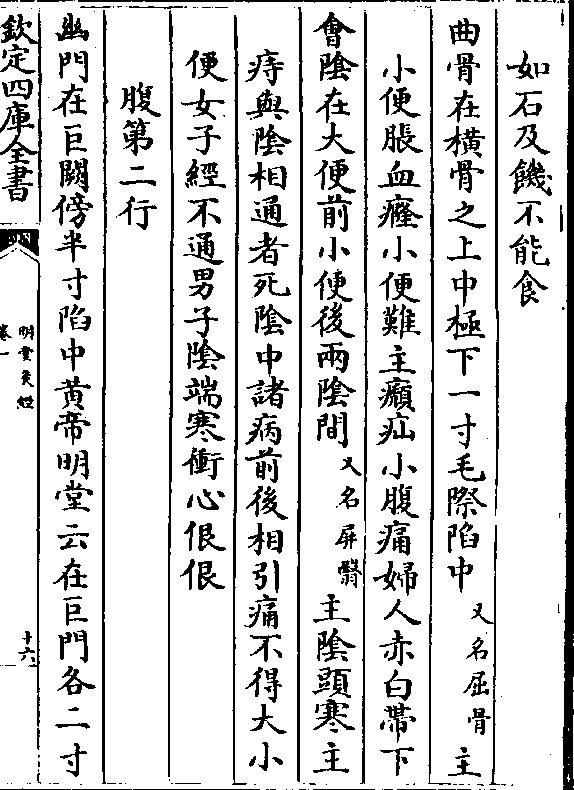 如石及饑不能食
曲骨在橫骨之上中極下一寸毛際陷中又名屈骨主
小便脹血癃小便難主癩疝小腹痛婦人赤白帶下
會陰在大便前小便後兩陰間又名屏翳主陰頭寒主
痔與陰相通者死陰中諸病前後相引痛不得大小
便女子經不通男子陰端寒衝心佷佷
腹第二行
幽門在巨闕傍半寸陷中黄帝明堂云在巨門各二寸
欽定四庫全書
明堂灸經
卷一
十六